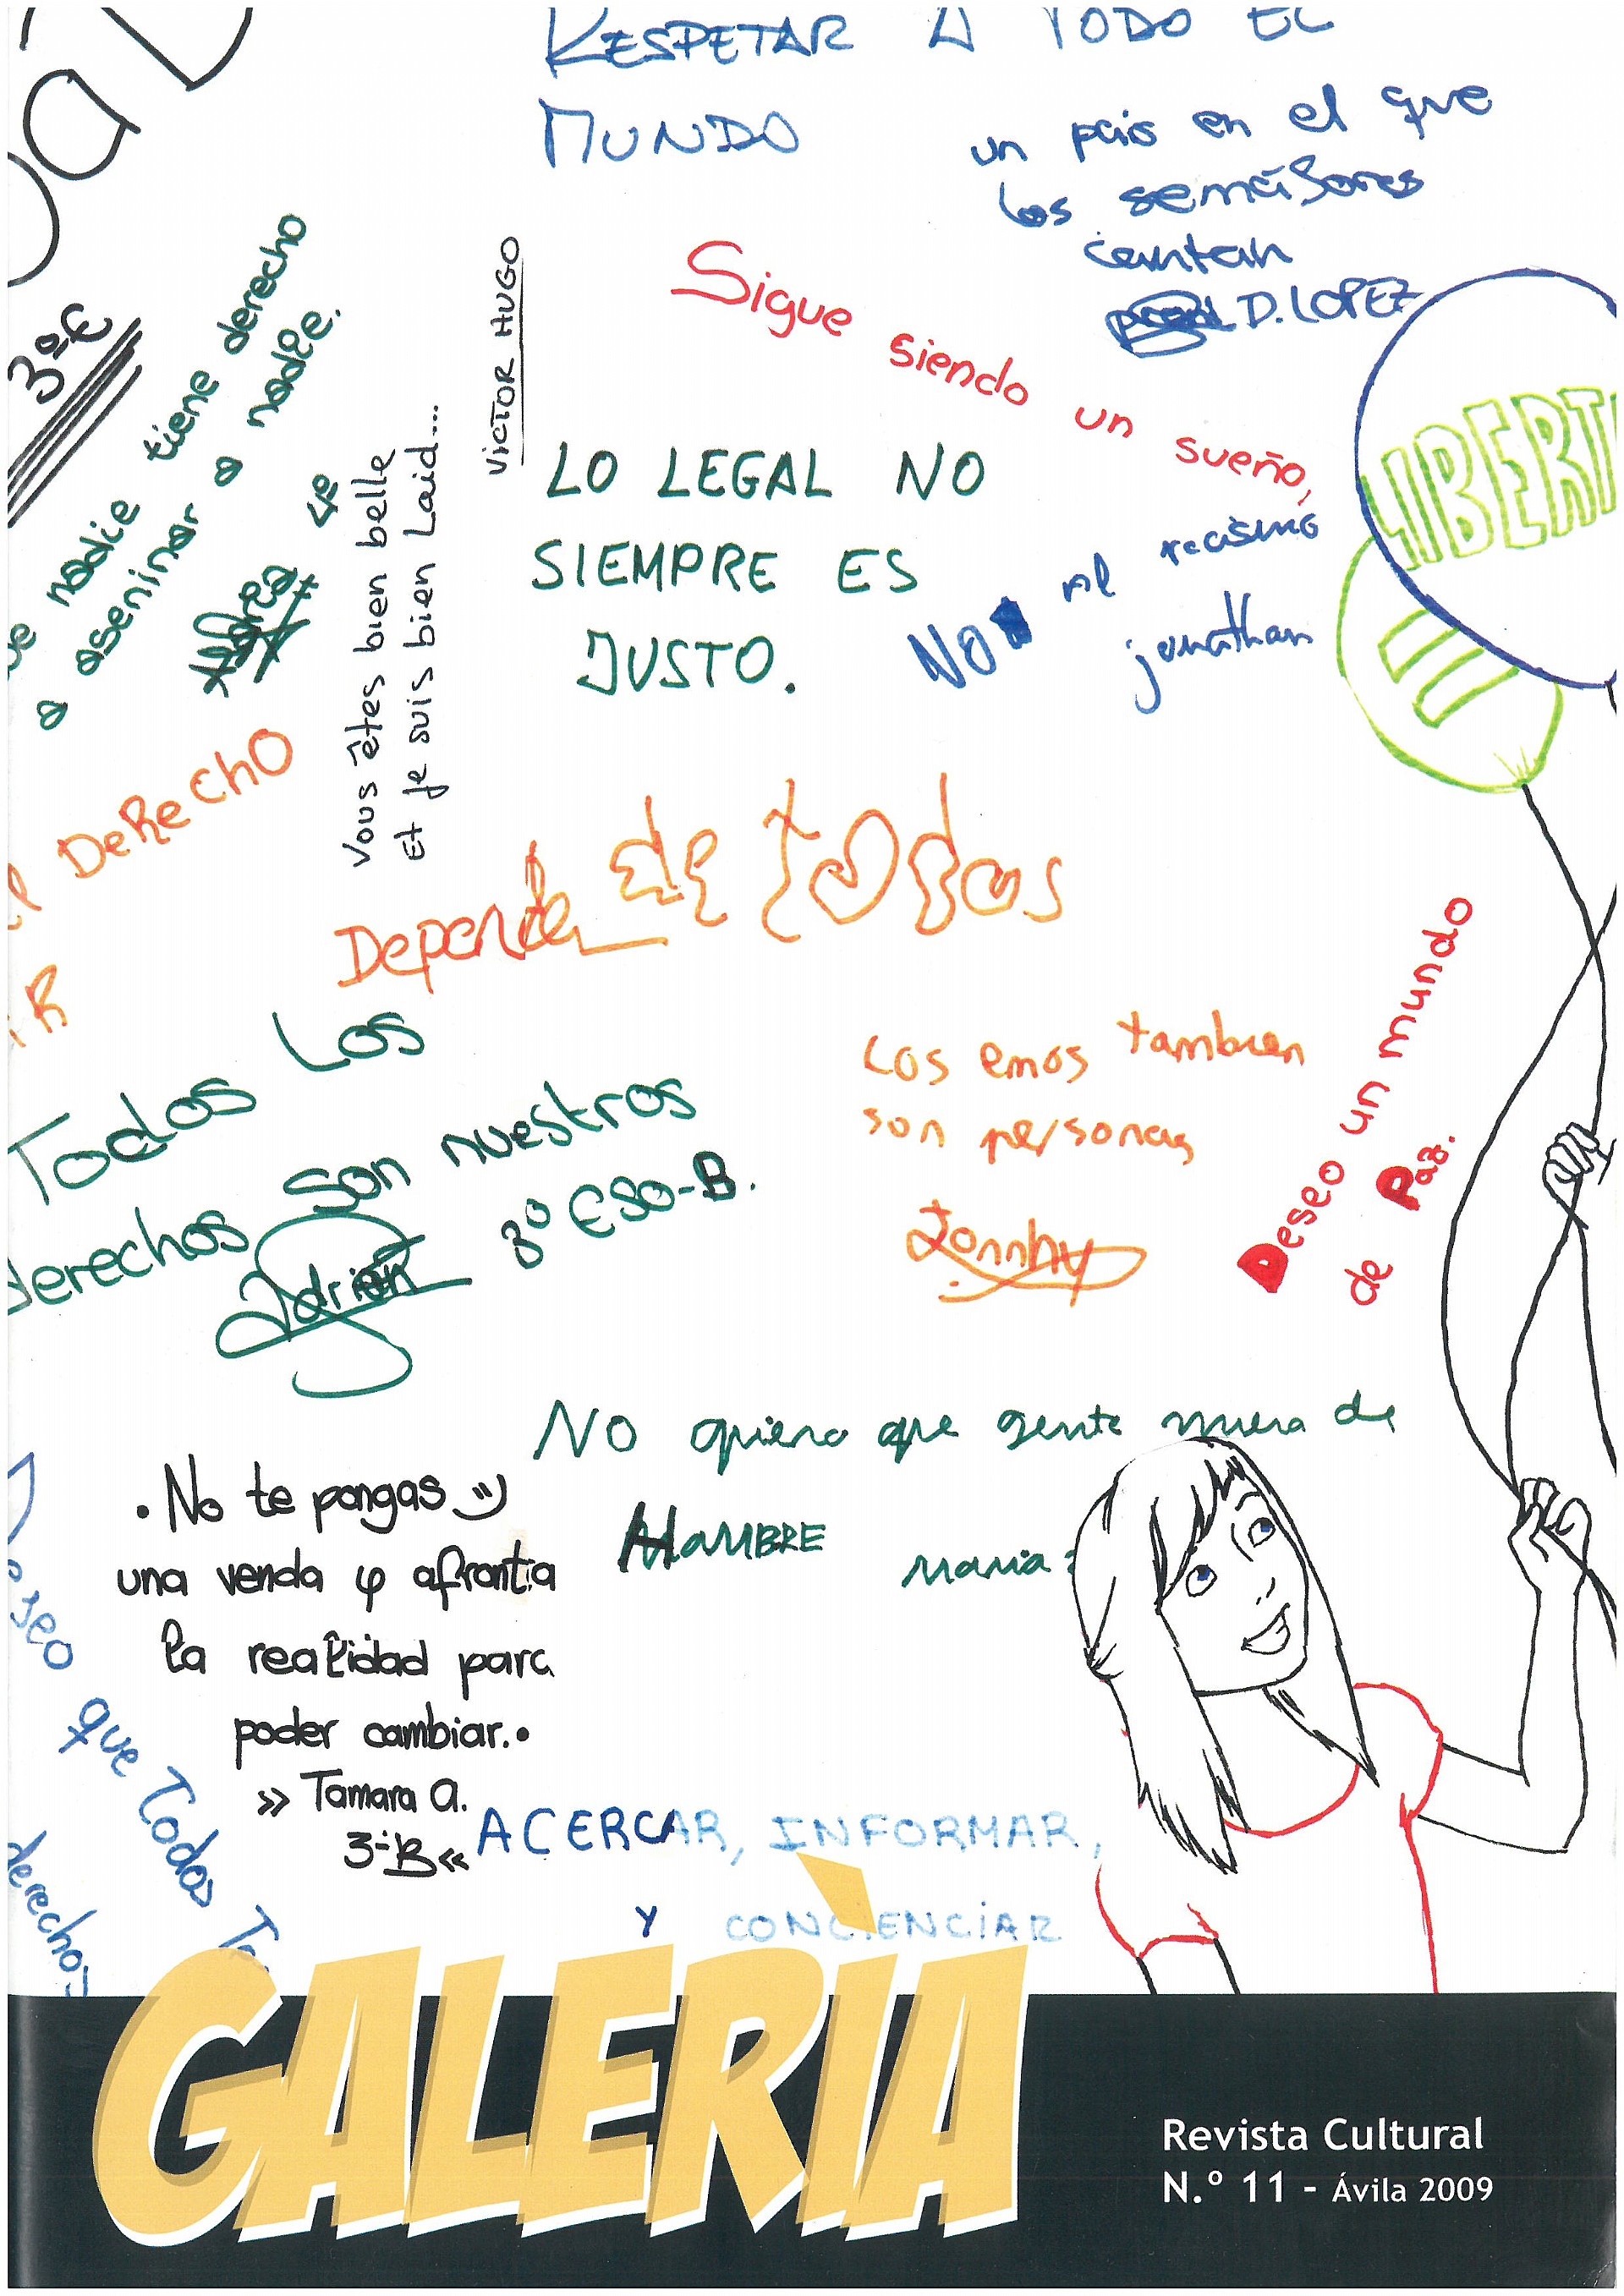 RESPETAR A TODO EL
MUNDO
un pais en el que
los semáforos
cantan
D. LOPEZ
3º E
nadie tiene derecho
a aseninar a nadie.
Andrea 4º
Vous êtes bien belle
Et je suis bien Laid...
VICTOR HUGO
Sigue siendo un sueño,
LO LEGAL NO
SIEMPRE ES
JUSTO.
No al racismo
jonathan
LIBERT
=
DeRecho
Depende de todos
Todos Los
derechos son nuestros
Adrián 3º ESO-B.
Los emos tambien
son personas
Jonnhy
Deseo un mundo
de Paz.
No quiero que gente muera de
HAMBRE
Maria
. No te pongas
una venda y afronta
la realidad para
poder cambiar..
>> Tamara A.
3º B <<
Deseo que Todos
derechos
ACERCAR, INFORMAR,
Y CONCIENCIAR
GALERÌA
Revista Cultural
N.º 11 - Ávila 2009